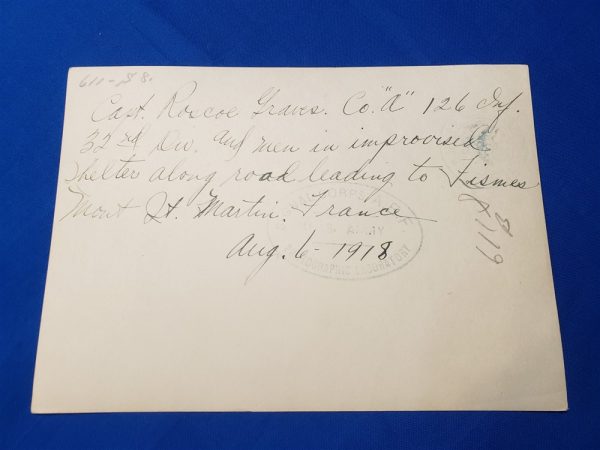 611-S 8.
Capt. Roscoe Graves. Co. "A" 126 Inf.
32nd Div. and men in improvised
shelter along road leading to Fismes
Mont St. Martin, France
Aug. 6 1918
CORPS
ARMY
PHOTOGRAPHIC LABORATORY